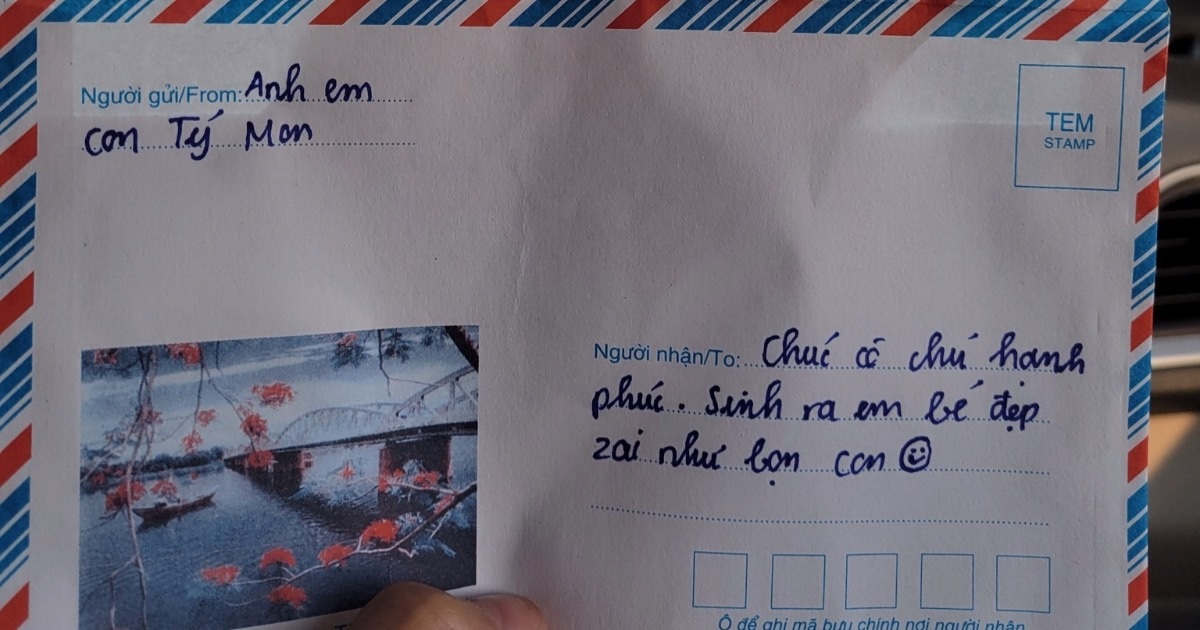 Người gửi/From: Anh em
con Tý Mon
TEM
STAMP
Người nhận/To: Chúc cô chú hanh
phúc. Sinh ra em bé đẹp
zai như bọn con
Ô để ghi mã bưu chính nơi người nhận